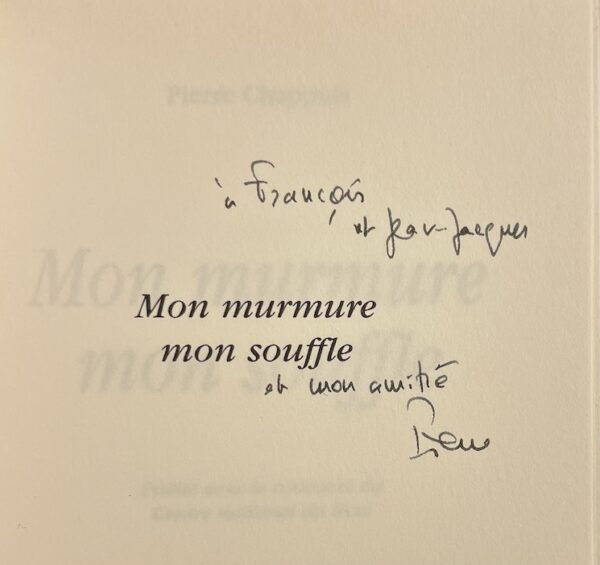 Pierre Chappuis
à François
et Jean-Jacques
Mon murmure
mon souffle
et mon amitié
Pierre
Publié avec le concours du
Centre national du livre